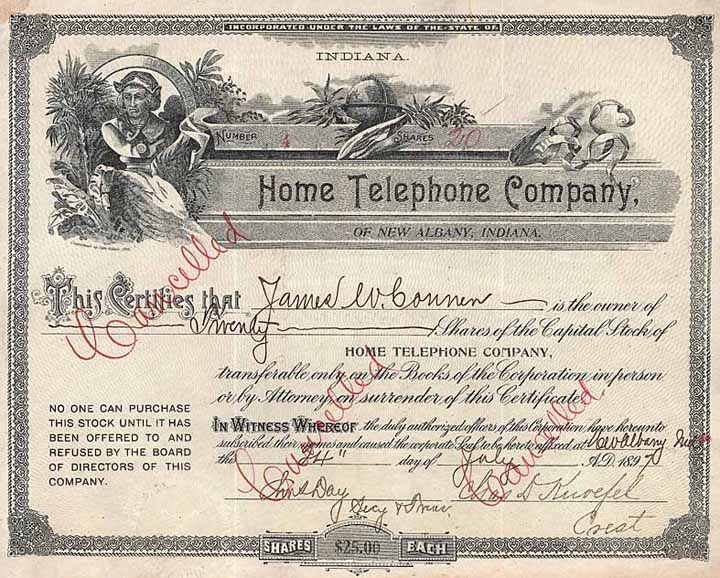 INCORPORATED UNDER THE LAWS OF THE STATE OF
INDIANA.
NUMBER 4 SHARES 20
Home Telephone Company,
OF NEW ALBANY, INDIANA.
This Certifies that James W. Connen is the owner of
Twenty Shares of the Capital Stock of
HOME TELEPHONE COMPANY,
transferable only on the Books of the Corporation in person
or by Attorney on surrender of this Certificate
NO ONE CAN PURCHASE
THIS STOCK UNTIL IT HAS
BEEN OFFERED TO AND
REFUSED BY THE BOARD
OF DIRECTORS OF THIS
COMPANY.
IN WITNESS WHEREOF the duly authorized officers of this Corporation have hereunto
subscribed their names and caused the corporate Seal to be hereto affixed at New Albany Ind
this 24" day of July A.D. 1897
Day Chas D Knoefel
Secy & Treas Prest
SHARES $25.00 EACH
Cancelled
Cancelled
Cancelled